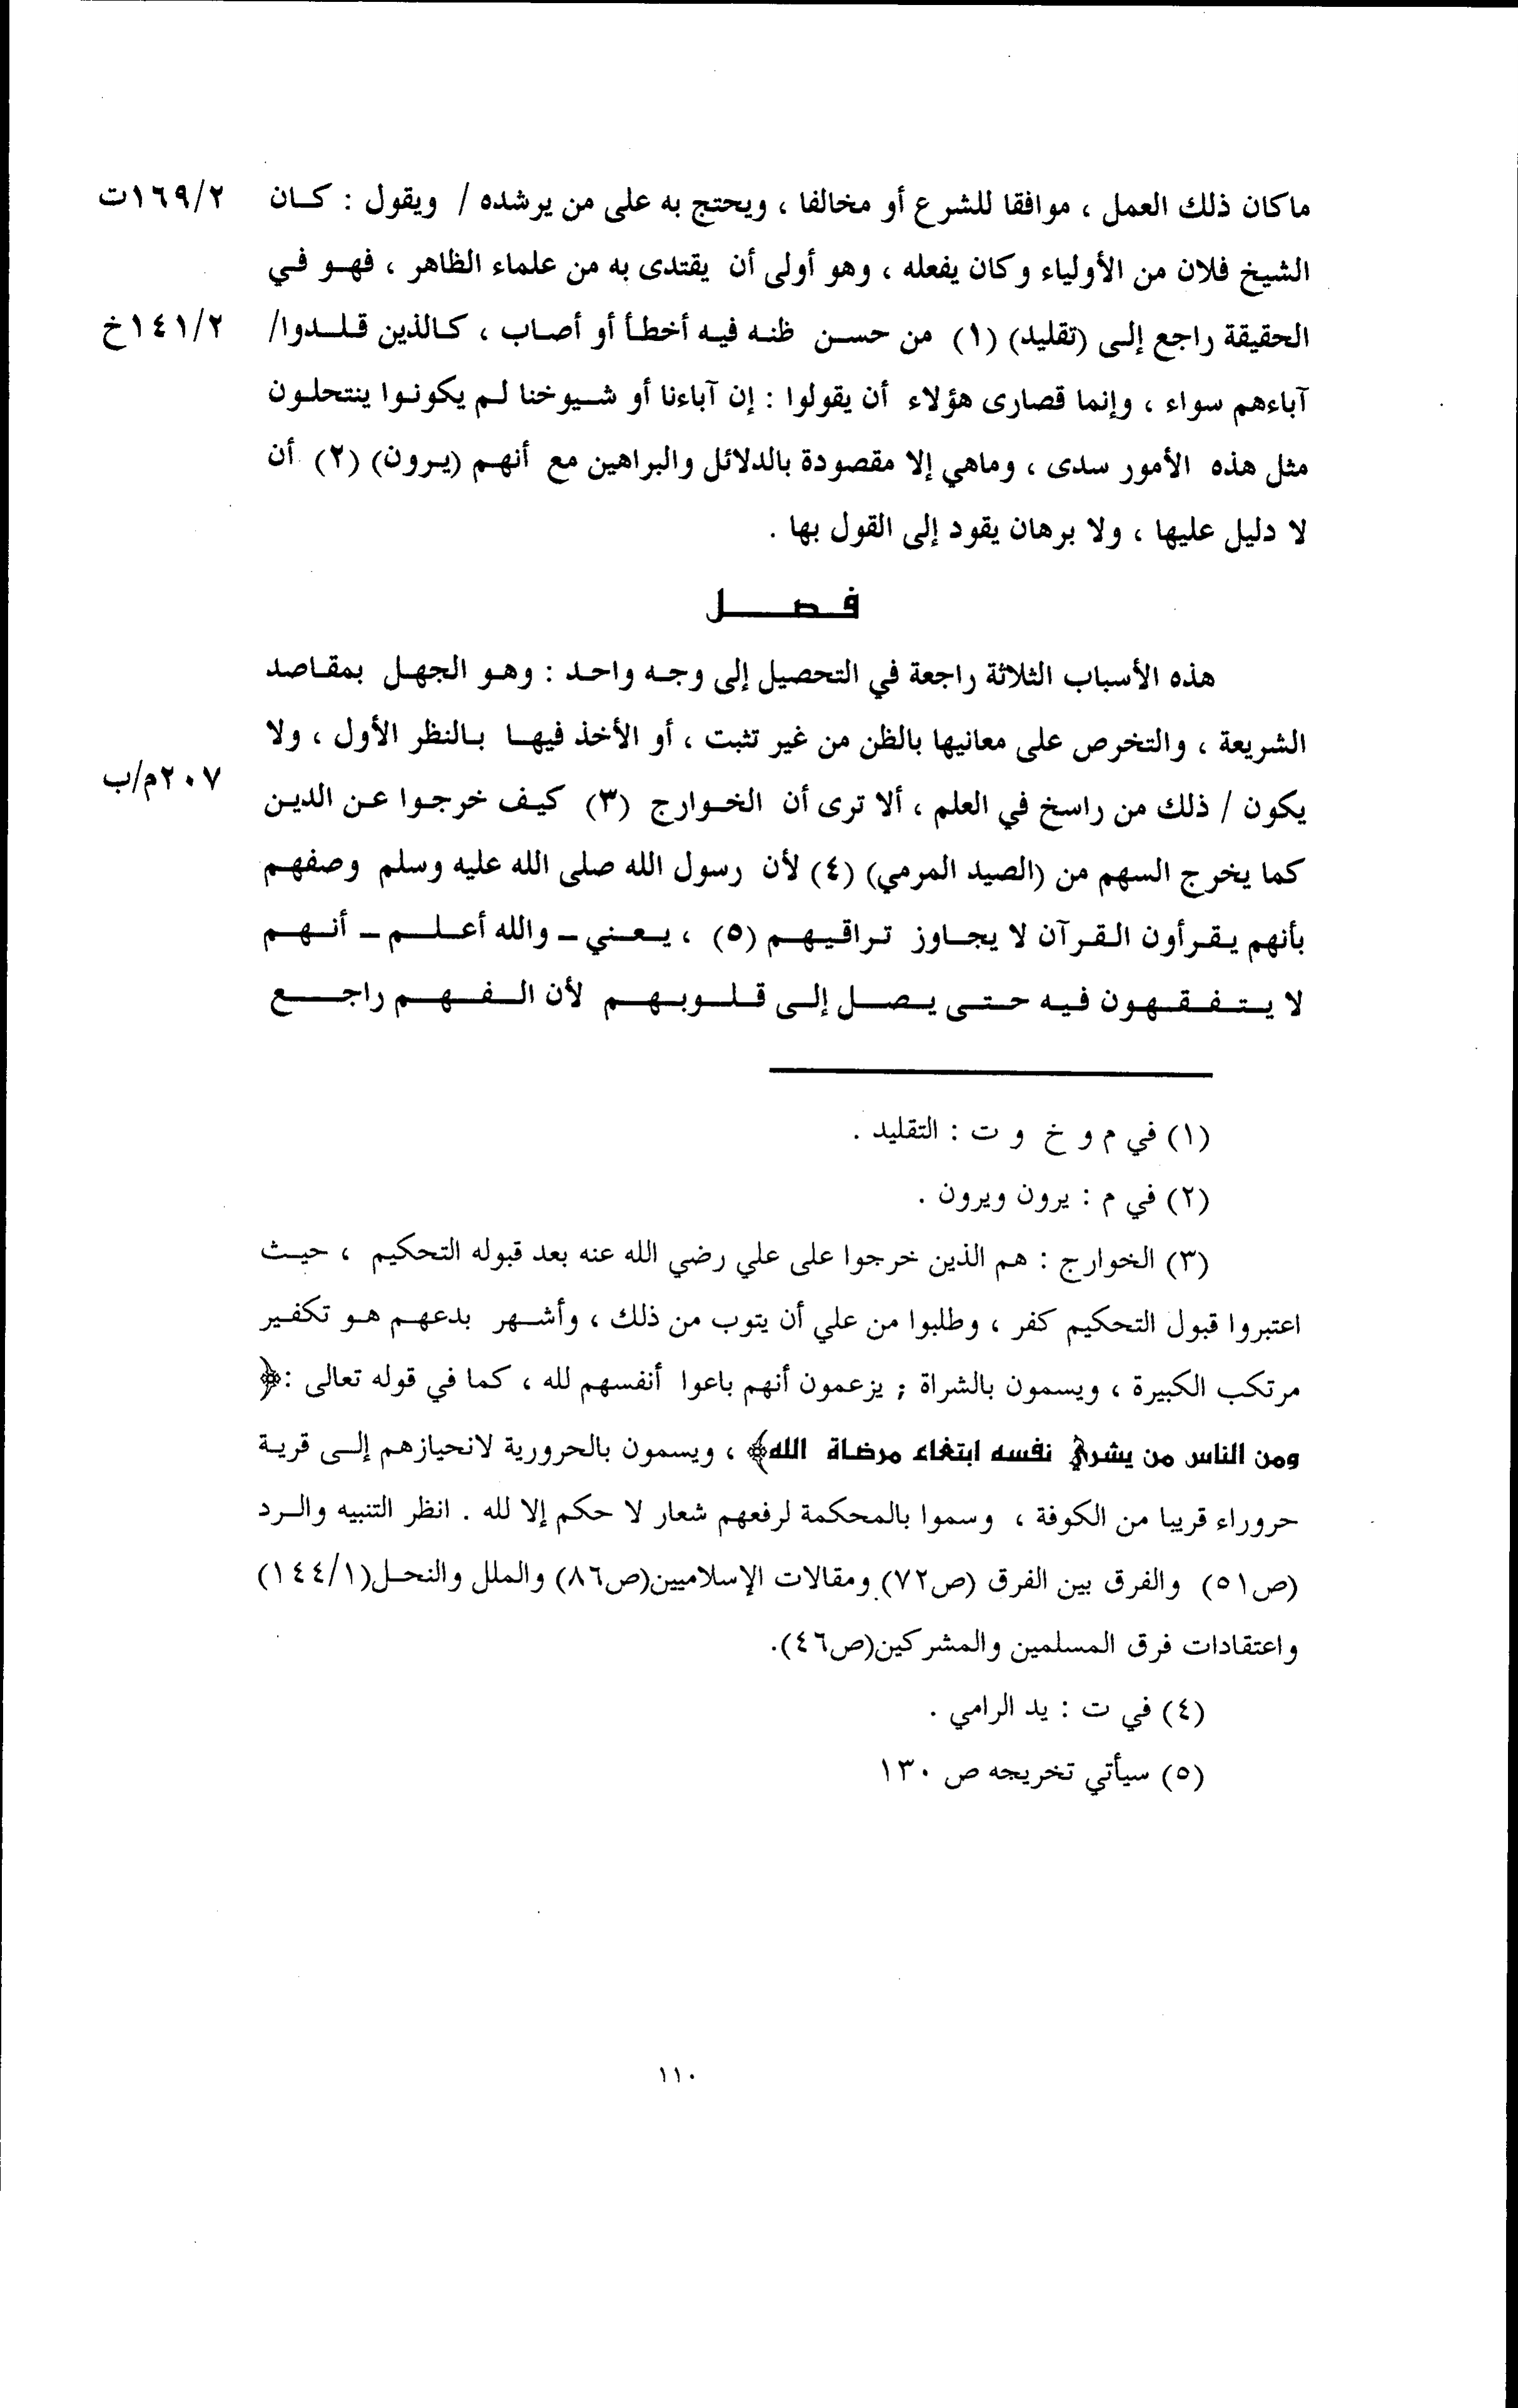 ماكان ذلك العمل ، موافقا للشرع أو مخالفا ، ويحتج به على من يرشده / ويقول : كـان ١٦٩/٢ت
الشيخ فلان من الأولياء وكان يفعله ، وهو أولى أن يقتدى به من علماء الظاهر ، فهـو فـي
الحقيقة راجع إلـى (تقليد) (١) من حسـن ظنـه فيـه أخطـأ أو أصـاب ، كـالذين قـلـدوا/ ١٤١/٢خ
آباءهم سواء ، وإنما قصارى هؤلاء أن يقولوا : إن آباءنا أو شـيوخنا لـم يكونـوا ينتحلـون
مثل هذه الأمور سدى ، وماهي إلا مقصودة بالدلائل والبراهين مع أنهـم (يـرون) (٢) أن
لا دليل عليها ، ولا برهان يقود إلى القول بها .
فـصـــل
هذه الأسباب الثلاثة راجعة في التحصيل إلى وجـه واحـد : وهـو الجهـل بمقـاصد
الشريعة ، والتخرص على معانيها بالظن من غير تثبت ، أو الأخذ فيهـا بـالنظر الأول ، ولا
يكون / ذلك من راسخ في العلم ، ألا ترى أن الخـوارج (٣) كيـف خرجـوا عـن الديـن ٢٠٧م/ب
كما يخرج السهم من (الصيد المرمي) (٤) لأن رسول الله صلى الله عليه وسلم وصفهم
بأنهم يـقـرأون الـقـرآن لا يجـاوز تـراقـيـهـم (٥) ، يـعـني ـ والله أعـلـم ـ أنـهـم
لا يـتـفـقـهون فـيـه حـتـى يـصـل إلـى قـلـوبـهـم لأن الـفـهـم راجـع
(١) في م و خ و ت : التقليد .
(٢) في م : يرون ويرون .
(٣) الخوارج : هم الذين خرجوا على علي رضي الله عنه بعد قبوله التحكيم ، حيـث
اعتبروا قبول التحكيم كفر ، وطلبوا من علي أن يتوب من ذلك ، وأشـهر بدعهـم هـو تكفـير
مرتكب الكبيرة ، ويسمون بالشراة ; يزعمون أنهم باعوا أنفسهم لله ، كما في قوله تعالى :﴿
ومن الناس من يشري نفسه ابتغاء مرضاة الله﴾ ، ويسمون بالحرورية لانحيازهم إلـى قريـة
حروراء قريبا من الكوفة ، وسموا بالمحكمة لرفعهم شعار لا حكم إلا لله . انظر التنبيه والـرد
(ص٥١) والفرق بين الفرق (ص٧٢) ومقالات الإسلاميين(ص٨٦) والملل والنحـل(١٤٤/١)
واعتقادات فرق المسلمين والمشركين(ص٤٦).
(٤) في ت : يد الرامي .
(٥) سيأتي تخريجه ص ١٣٠
١١٠